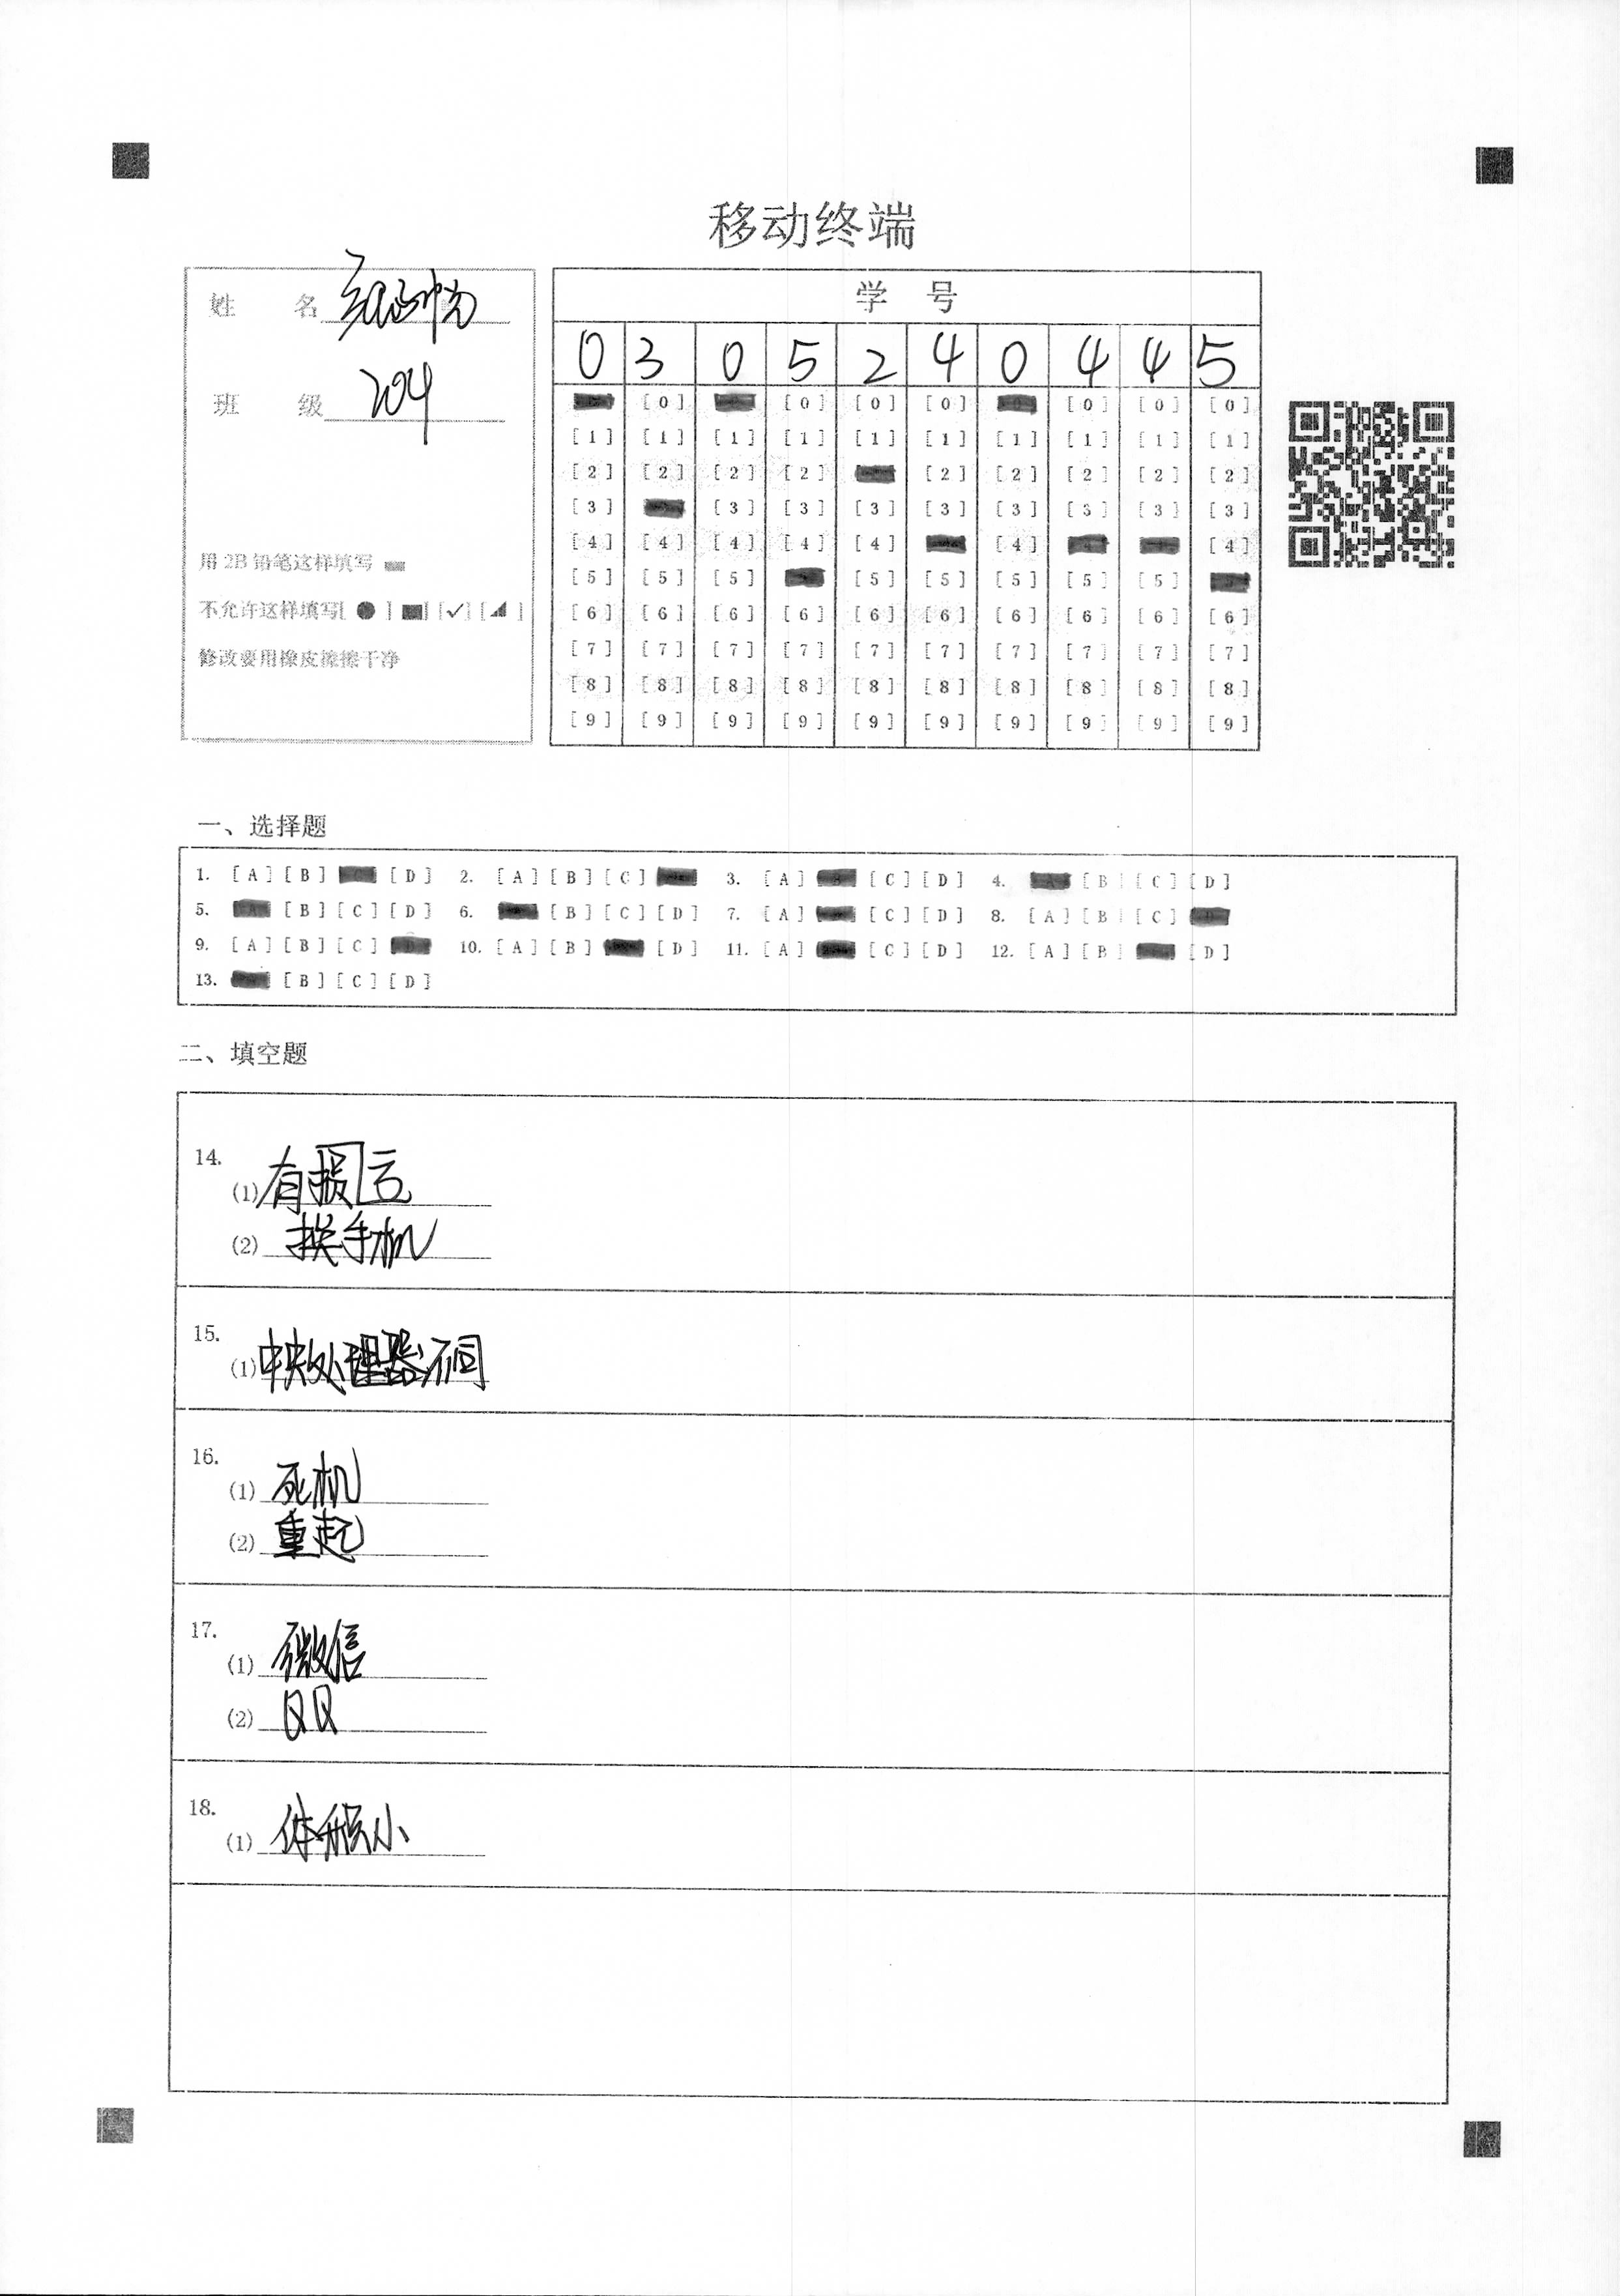 移动终端
姓 名
班 级 204
用 2B 铅笔这样填写
不允许这样填写[ ● ] [■] [✓] [◢ ]
修改要用橡皮擦擦干净
学 号
0 3 0 5 2 4 0 4 4 5
[0] [0] [0] [0] [0] [0] [0]
[1] [1] [1] [1] [1] [1] [1] [1] [1] [1]
[2] [2] [2] [2] [2] [2] [2] [2] [2]
[3] [3] [3] [3] [3] [3] [3] [3] [3]
[4] [4] [4] [4] [4] [4] [4]
[5] [5] [5] [5] [5] [5] [5] [5]
[6] [6] [6] [6] [6] [6] [6] [6] [6] [6]
[7] [7] [7] [7] [7] [7] [7] [7] [7] [7]
[8] [8] [8] [8] [8] [8] [8] [8] [8] [8]
[9] [9] [9] [9] [9] [9] [9] [9] [9] [9]
一、选择题
1. [A] [B] [D] 2. [A] [B] [C] 3. [A] [C] [D] 4. [B] [C] [D]
5. [B] [C] [D] 6. [B] [C] [D] 7. [A] [C] [D] 8. [A] [B] [C]
9. [A] [B] [C] 10. [A] [B] [D] 11. [A] [C] [D] 12. [A] [B] [D]
13. [B] [C] [D]
二、填空题
14.
(1) 有损
(2) 换手机
15.
(1) 中央处理器不同
16.
(1) 死机
(2) 重起
17.
(1) 微信
(2) QQ
18.
(1) 体积小